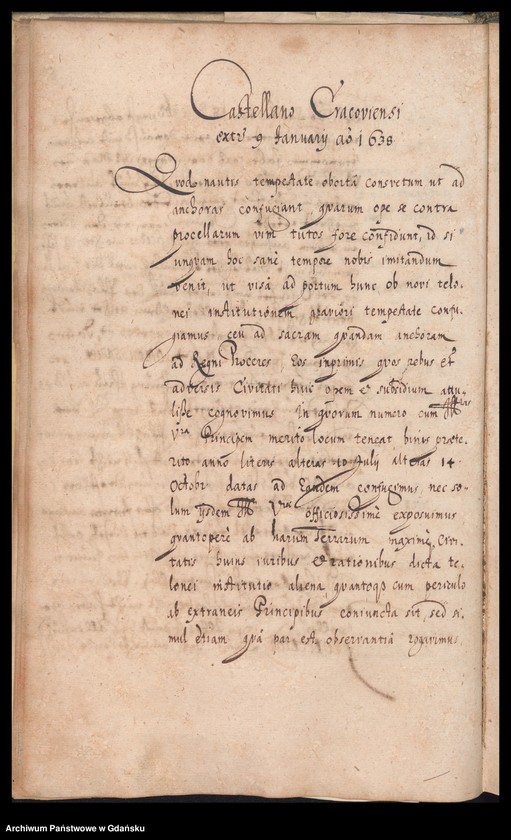 Castellano Cracoviensi
extr. 9 January aō 1638
Qvod nautis tempestate obortâ consvetum ut ad
anchoras confugiant, qvarum ope se contra
procellarum vim tutos fore confidunt, id si
unqvam hoc sanè tempore nobis imitandum
venit, ut visâ ad portum hunc ob novi telo-
nei institutionem graviori tempestate confu-
giamus ceu ad sacram qvandam anchoram
ad Regni Proceres, Eos inprimis qvos rebus et
adversis Civitati huic opem et subsidium attu-
lisse cognovimus. In qvorum numero cum
vra Principem merito locum teneat binis præte-
rito anno literis alteras 10 Julij alteras 14
Octobr datas ad Eandem confugimus, nec so-
lum ijsdem Vræ officiosissimè exposuimus
qvantoperè ab harum Terrarum maximè, Civi-
tatis huius iuribus et rationibus dicta te-
lonei institutio aliena, qvantoqȝ cum periculo
ab extraneis Principibus coniuncta sit, sed si-
mul etiam qvâ par est observantiâ rogavimus
Archiwum Państwowe w Gdańsku